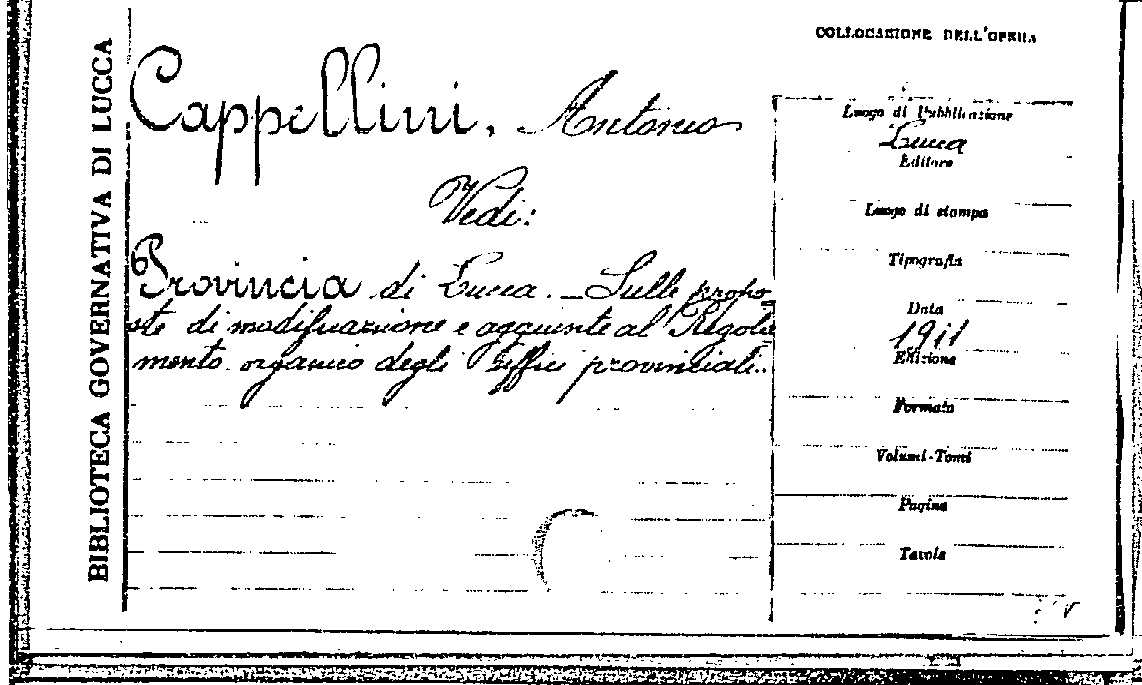 BIBLIOTECA GOVERNATIVA DI LUCCA
Cappellini, Antonio
Vedi:
Provincia di Lucca. - Sulle propo
ste di modificazione e aggiunte al Regola
mento organico degli Uffici provinciali.
COLLOCAZIONE DELL'OPERA
Luogo di Pubblicazione
Lucca
Editore
Luogo di stampa
Tipografia
Data
1911
Edizione
Formato
Volumi-Tomi
Pagine
Tavole